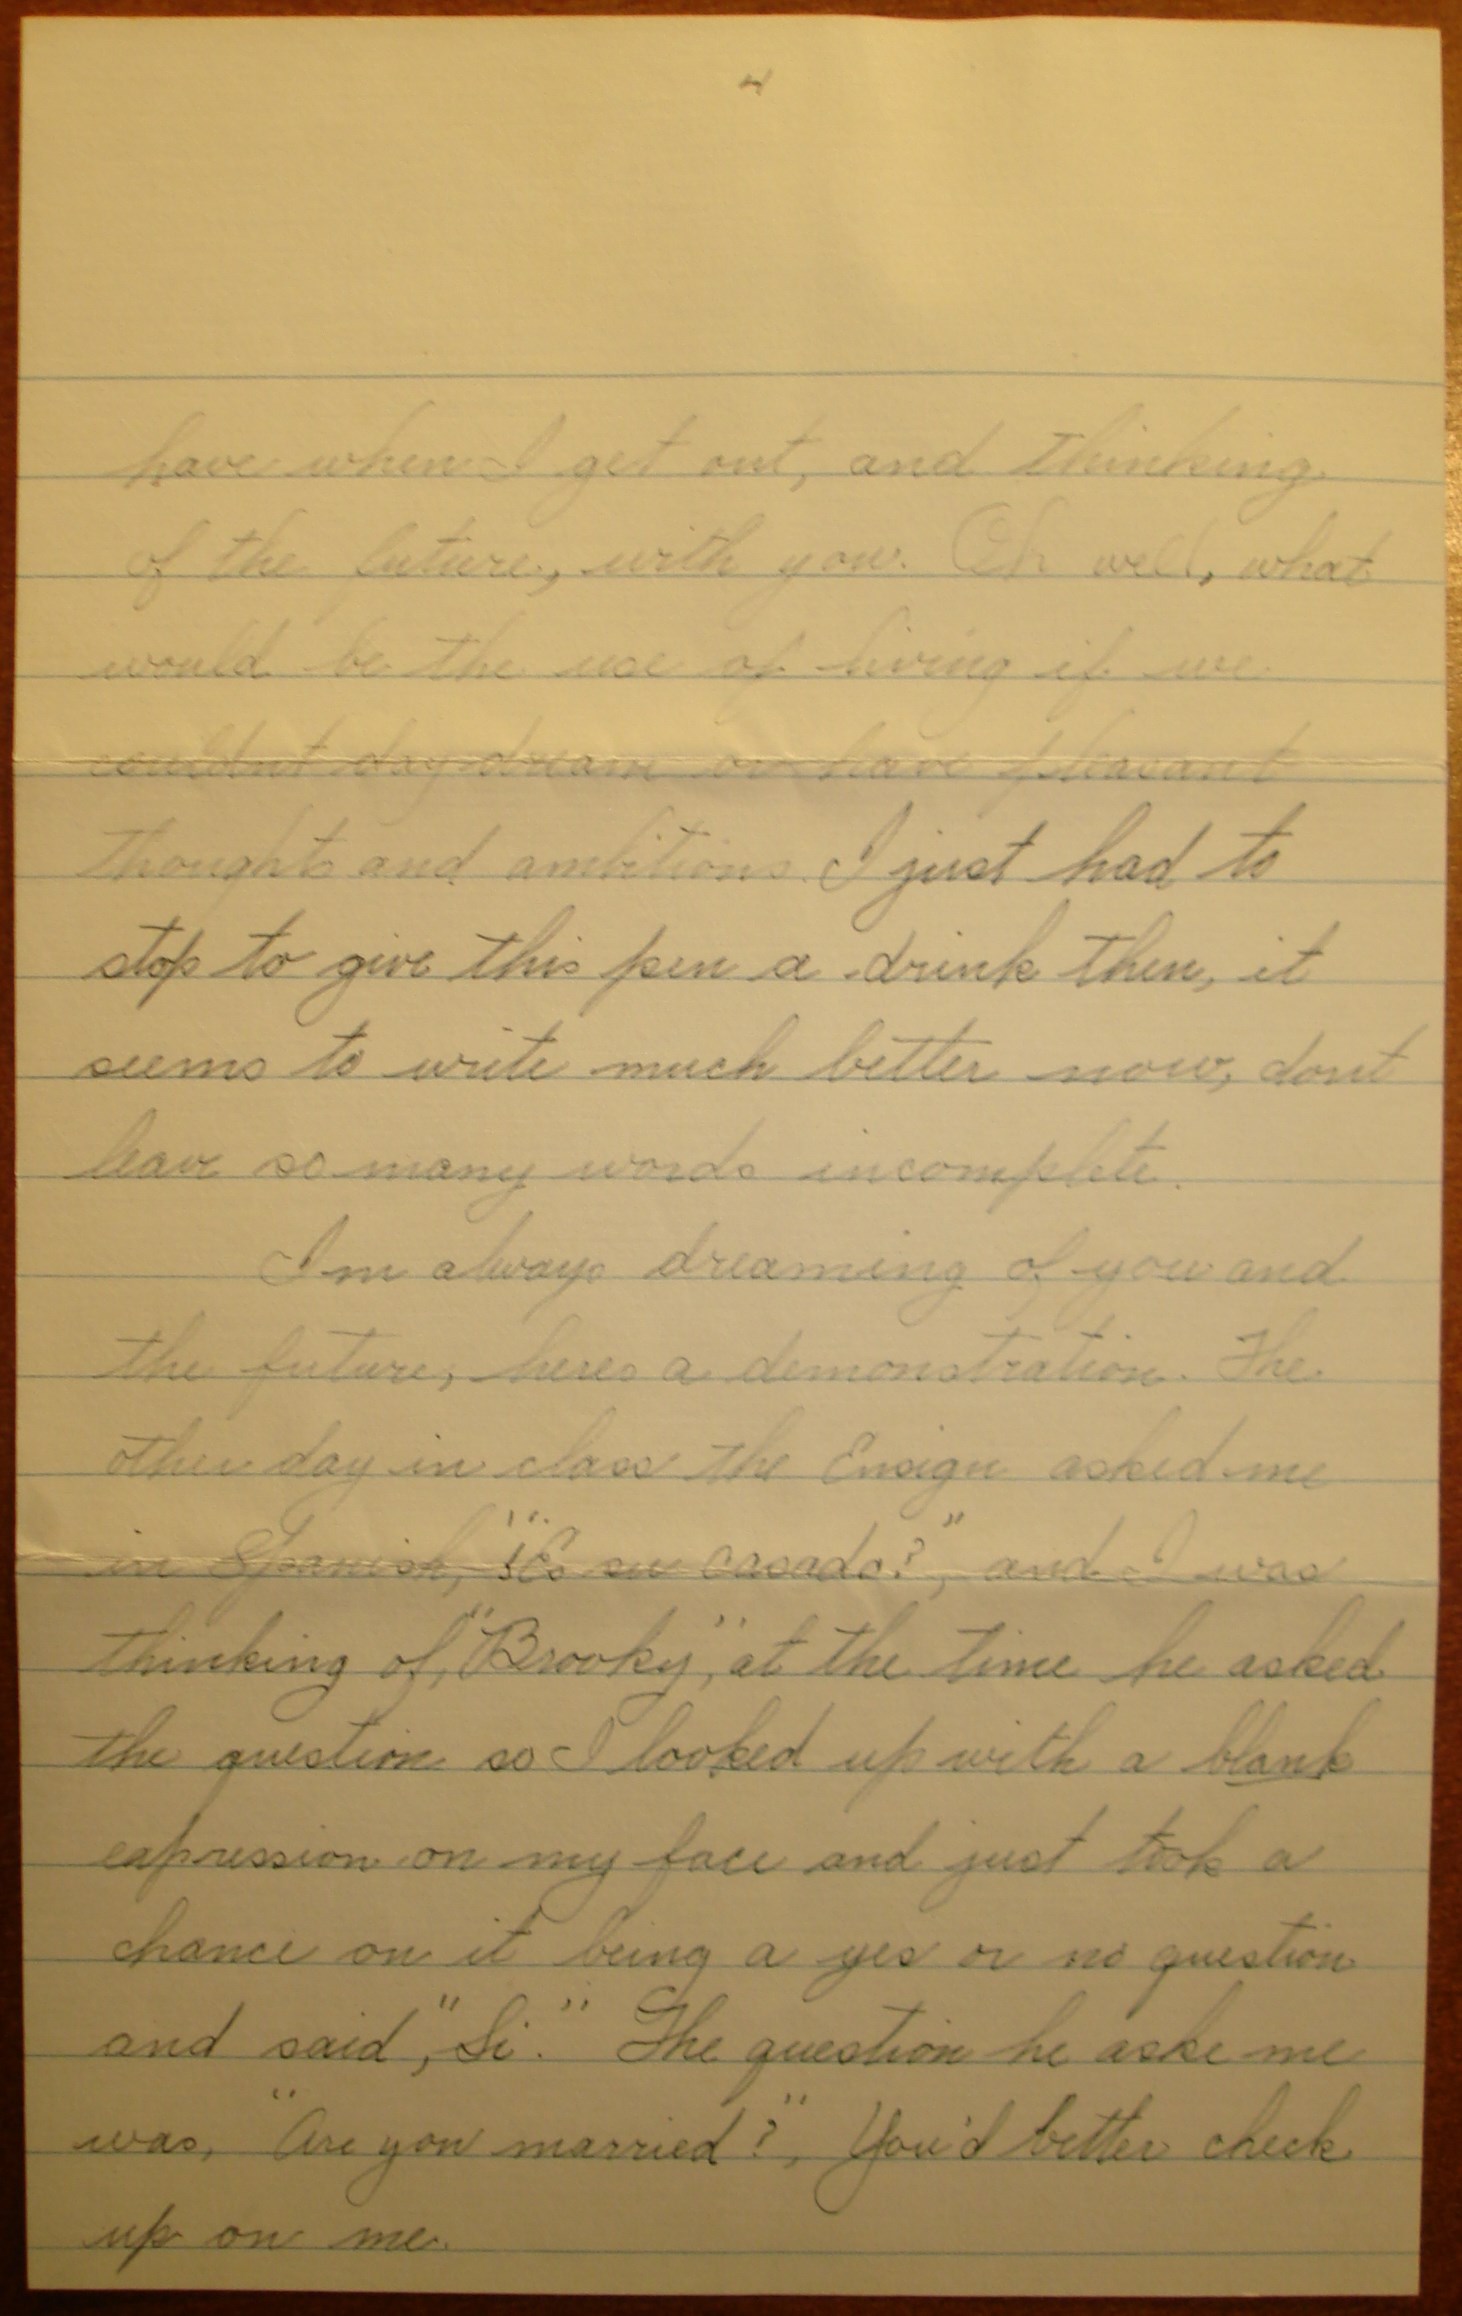 4
have when I get out, and thinking
of the future, with you. Oh well, what
would be the use of living if we
couldnt day dream or have pleasant
thoughts and ambitions. I just had to
stop to give this pen a drink then, it
seems to write much better now, dont
leave so many words incomplete.
Im always dreaming of you and
the future, heres a demonstration. The
other day in class the Ensign asked me
in Spanish, "¿Es su casado?", and I was
thinking of, "Brooky", at the time he asked
the question so I looked up with a blank
expression on my face and just took a
chance on it being a yes or no question
and said, "Si." The question he aske me
was, "Are you married?", You'd better check
up on me.